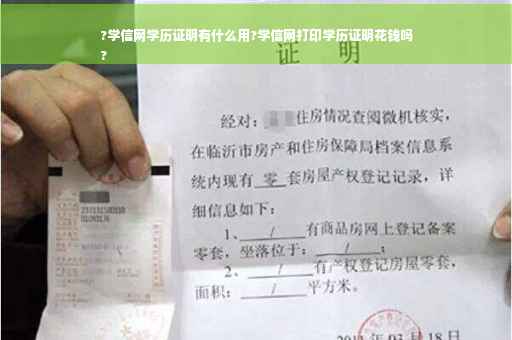 ?学信网学历证明有什么用?学信网打印学历证明花钱吗
?
证 明
经对: 住房情况查阅微机核实,
在临沂市房产和住房保障局档案信息系
统内现有 零 套房屋产权登记记录, 详
细信息如下:
1、 / 有商品房网上登记备案
零套, 坐落位于: / ;
2、 / 有产权登记房屋零套,
面积: / 平方米。
03 月 18 日